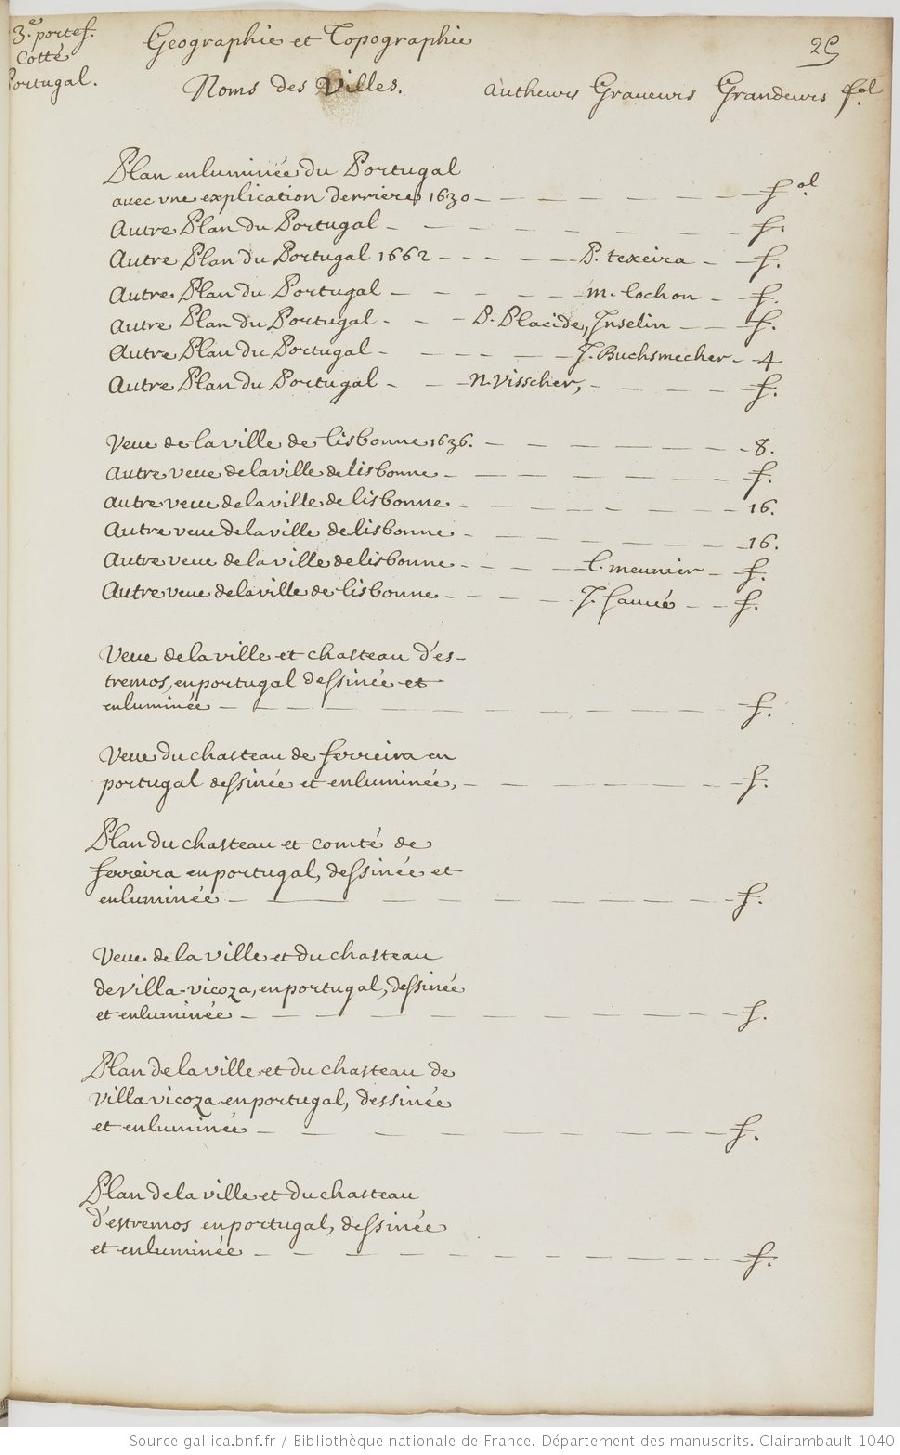 3.e portef.
Cotté
Portugal.
Geographie et Topographie
25
Noms des Villes. autheurs Graueurs Grandeurs fol
Plan enluminée du Portugal
auec vne explication derriere 1630 - - - - - - - fol
Autre Plan du Portugal - - - - - - - f.
Autre Plan du Portugal 1662 - - - - - P. texeira - f.
Autre Plan du Portugal - - - - - m. Cochon - f.
Autre Plan du Portugal - - - P. Placide, Inselin - - f.
Autre Plan du Portugal - - - - - J. Buchsmecher - - 4
Autre Plan du Portugal - - N. Visscher, - - - - f.
Veue de la ville de Lisbonne 1636. - - - - - - - 8.
Autre veue de la ville de Lisbonne - - - - - - - f.
Autre veue de la ville de Lisbonne. - - - - - - - 16.
Autre veue de la ville de Lisbonne - - - - - - - 16.
Autre veue de la ville de Lisbonne - - - - L. meunier - f.
Autre veue de la ville de Lisbonne - - - - J. Sauué - - f.
Veue de la ville et chasteau d'es-
tremos, en portugal dessinée et
enluminée - - - - - - - - - f.
Veue du chasteau de ferreira en
portugal dessinée et enluminée, - - - - - - - f.
Plan du chasteau et comté de
ferreira en portugal, dessinée et
enluminée - - - - - - - - - f.
Veue de la ville et du chasteau
de Villa-vicoza, en portugal, dessinée
et enluminée - - - - - - - - - f.
Plan de la ville et du chasteau de
Villa vicoza en portugal, dessinée
et enluminée - - - - - - - - - f.
Plan de la ville et du chasteau
d'estremos en portugal, dessinée
et enluminée - - - - - - - - - f.
Source gallica.bnf.fr / Bibliothèque nationale de France. Département des manuscrits. Clairambault 1040